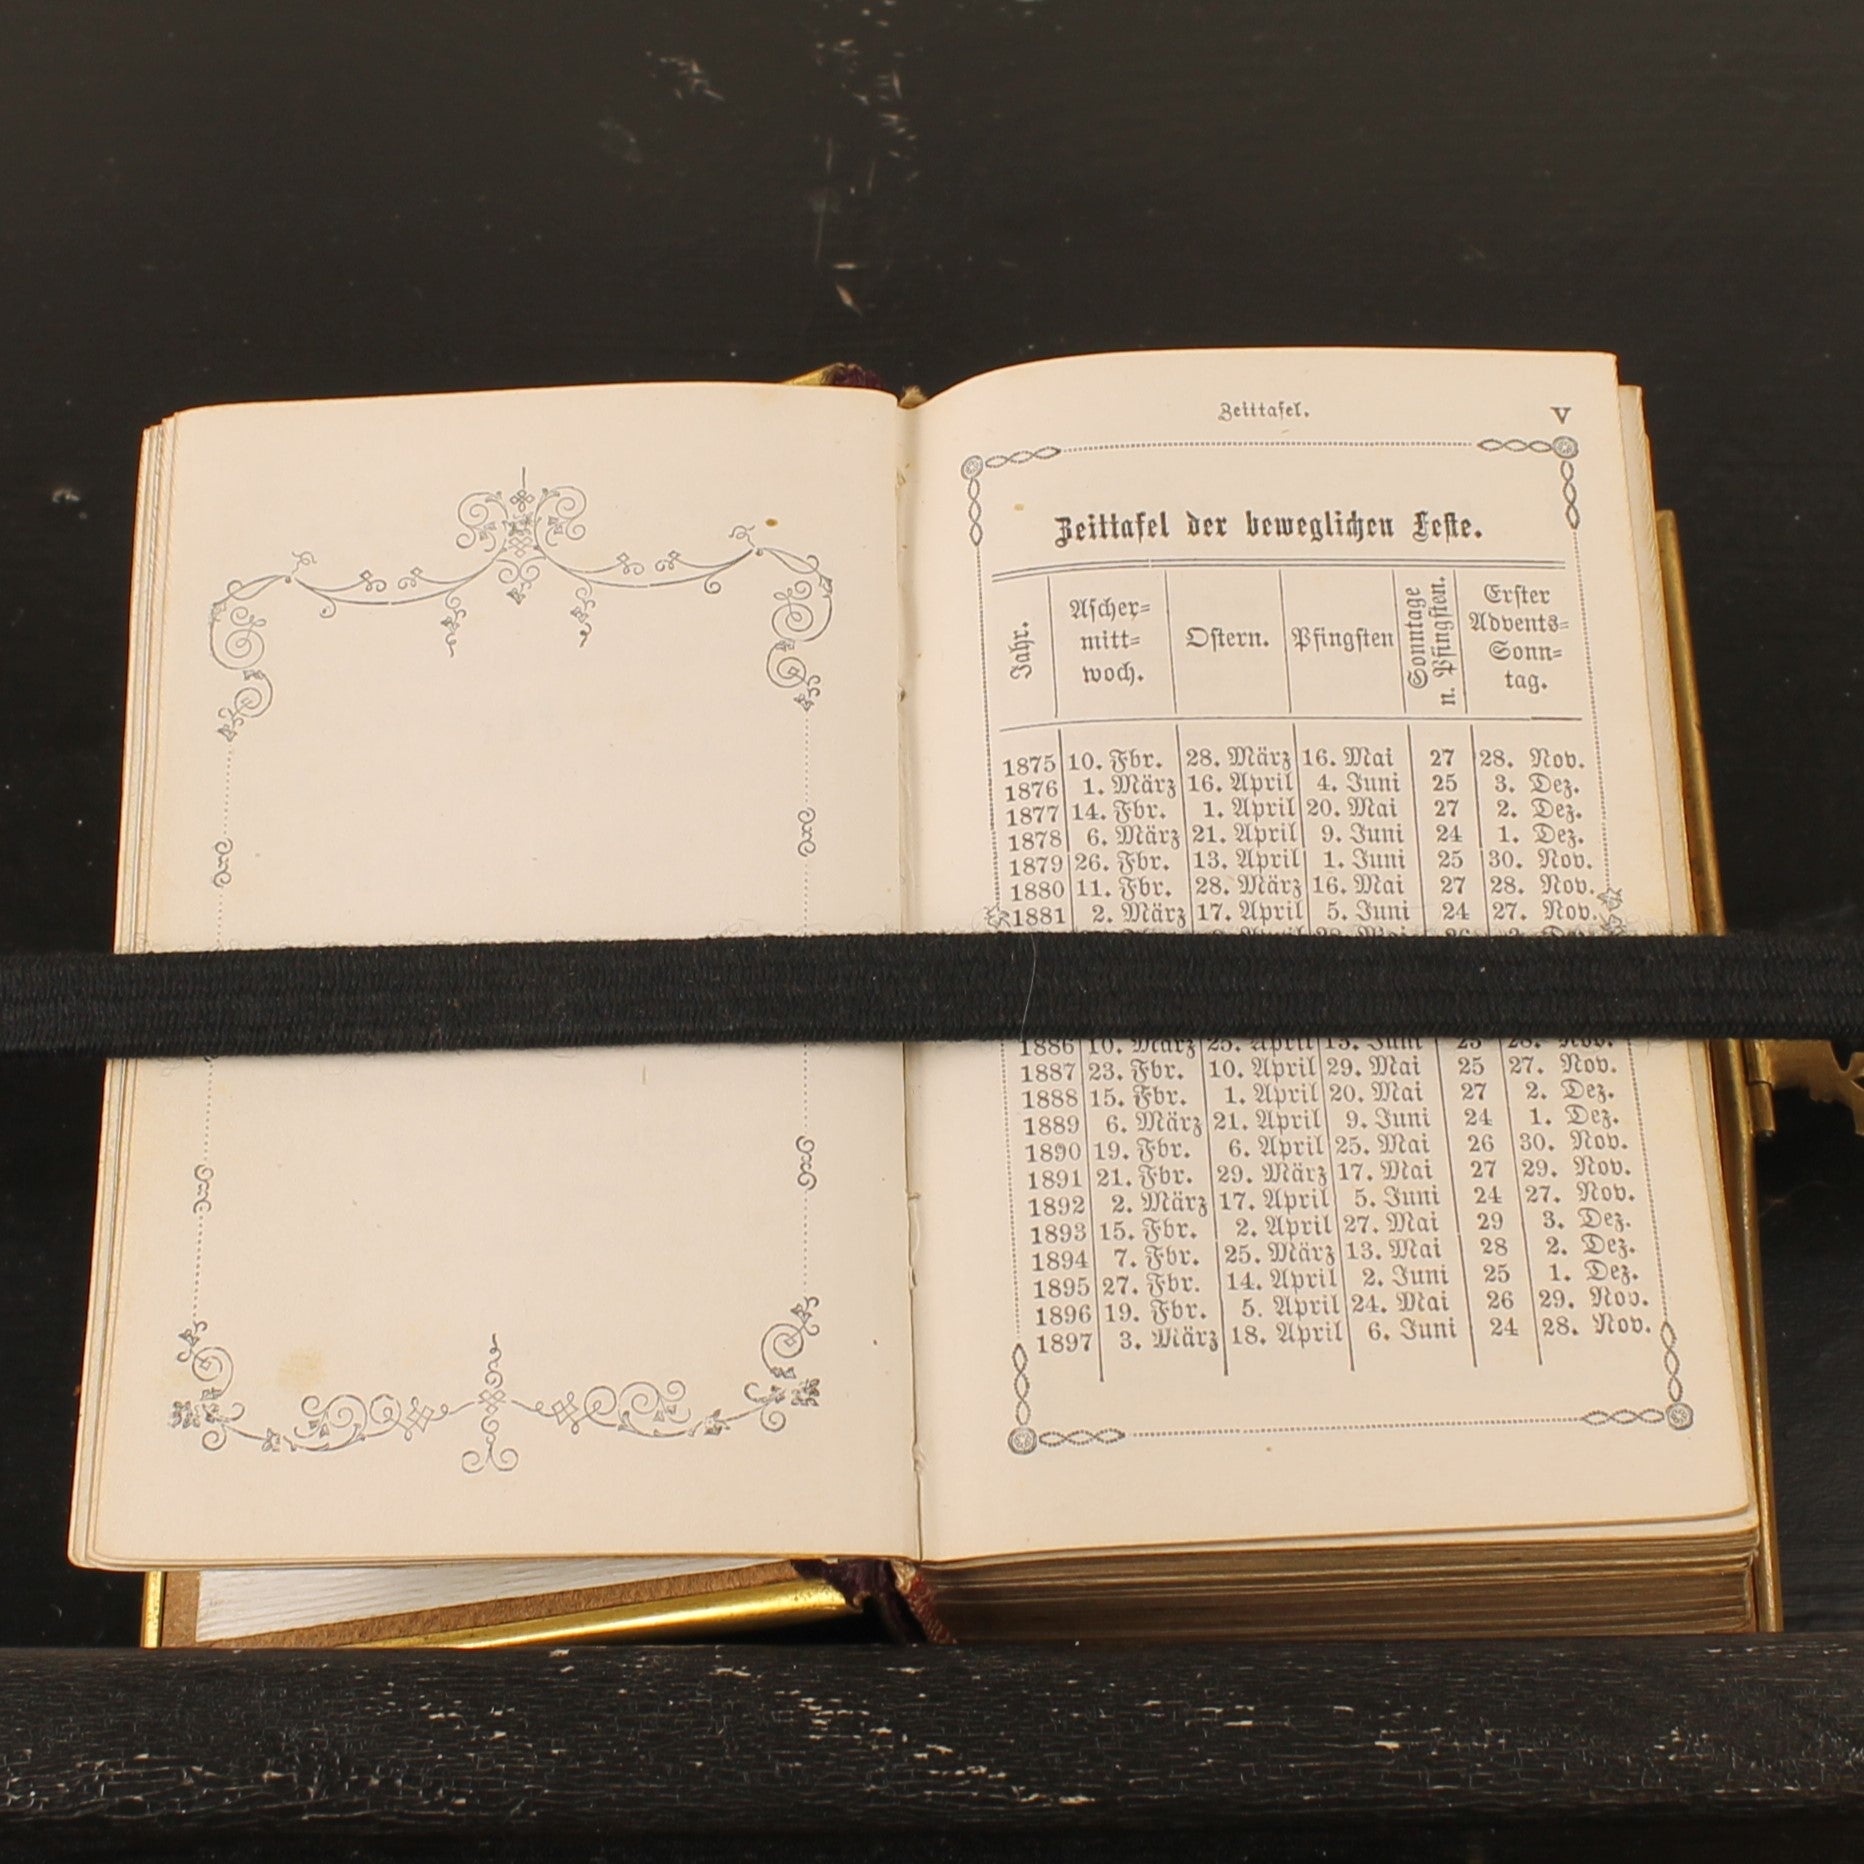 Zeittafel. V
Zeittafel der beweglichen Feste.
Jahr. Ascher= mitt= woch. Ostern. Pfingsten Sonntage n. Pfingsten. Erster Advents= Sonn= tag.
1875 10. Fbr. 28. März 16. Mai 27 28. Nov.
1876 1. März 16. April 4. Juni 25 3. Dez.
1877 14. Fbr. 1. April 20. Mai 27 2. Dez.
1878 6. März 21. April 9. Juni 24 1. Dez.
1879 26. Fbr. 13. April 1. Juni 25 30. Nov.
1880 11. Fbr. 28. März 16. Mai 27 28. Nov.
1881 2. März 17. April 5. Juni 24 27. Nov.
1886 10. März 25. April 13. Juni 23 28. Nov.
1887 23. Fbr. 10. April 29. Mai 25 27. Nov.
1888 15. Fbr. 1. April 20. Mai 27 2. Dez.
1889 6. März 21. April 9. Juni 24 1. Dez.
1890 19. Fbr. 6. April 25. Mai 26 30. Nov.
1891 21. Fbr. 29. März 17. Mai 27 29. Nov.
1892 2. März 17. April 5. Juni 24 27. Nov.
1893 15. Fbr. 2. April 27. Mai 29 3. Dez.
1894 7. Fbr. 25. März 13. Mai 28 2. Dez.
1895 27. Fbr. 14. April 2. Juni 25 1. Dez.
1896 19. Fbr. 5. April 24. Mai 26 29. Nov.
1897 3. März 18. April 6. Juni 24 28. Nov.